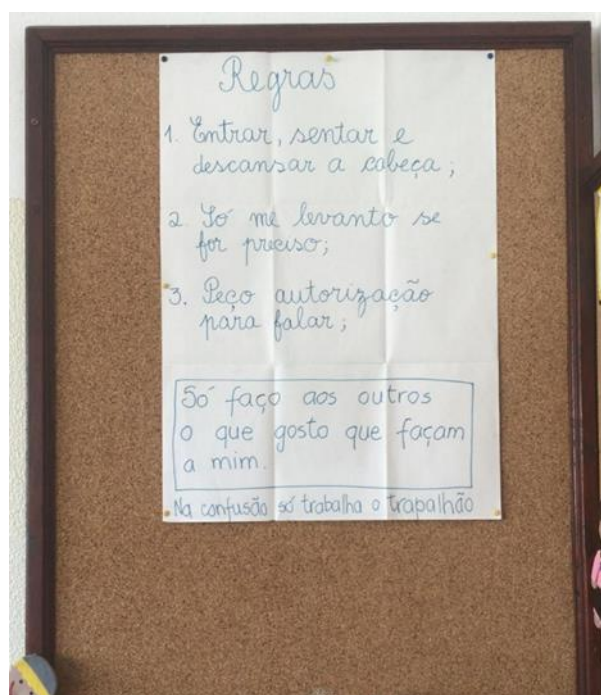 Regras
1. Entrar, sentar e
descansar a cabeça;
2. Só me levanto se
for preciso;
3. Peço autorização
para falar;
Só faço aos outros
o que gosto que façam
a mim.
Na confusão só trabalha o trapalhão